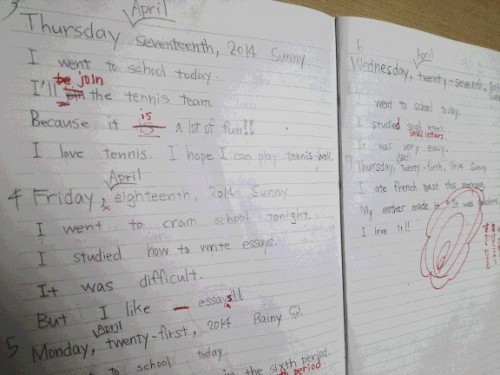 3
April
Thursday seventeenth, 2014 Sunny
I went to school today.
be join
I'll the tennis team
is
Because it is a lot of fun!!
I love tennis. I hope I can play tennis well.
April
4 Friday, eighteenth, 2014 Sunny
I went to cram school tonight.
I studied how to write essays.
It was difficult.
But I like essays!!
April
5 Monday, twenty-first, 2014 Rainy
to school today
in the sixth period.
th period
6
April
Wednesday, twenty-seventh,
I went to school today.
I studied
small letters.
It was very easy.
7 Thursday, twenty-first, Sunny
I ate french toast this morning.
My mother made it. It was
I love it!!